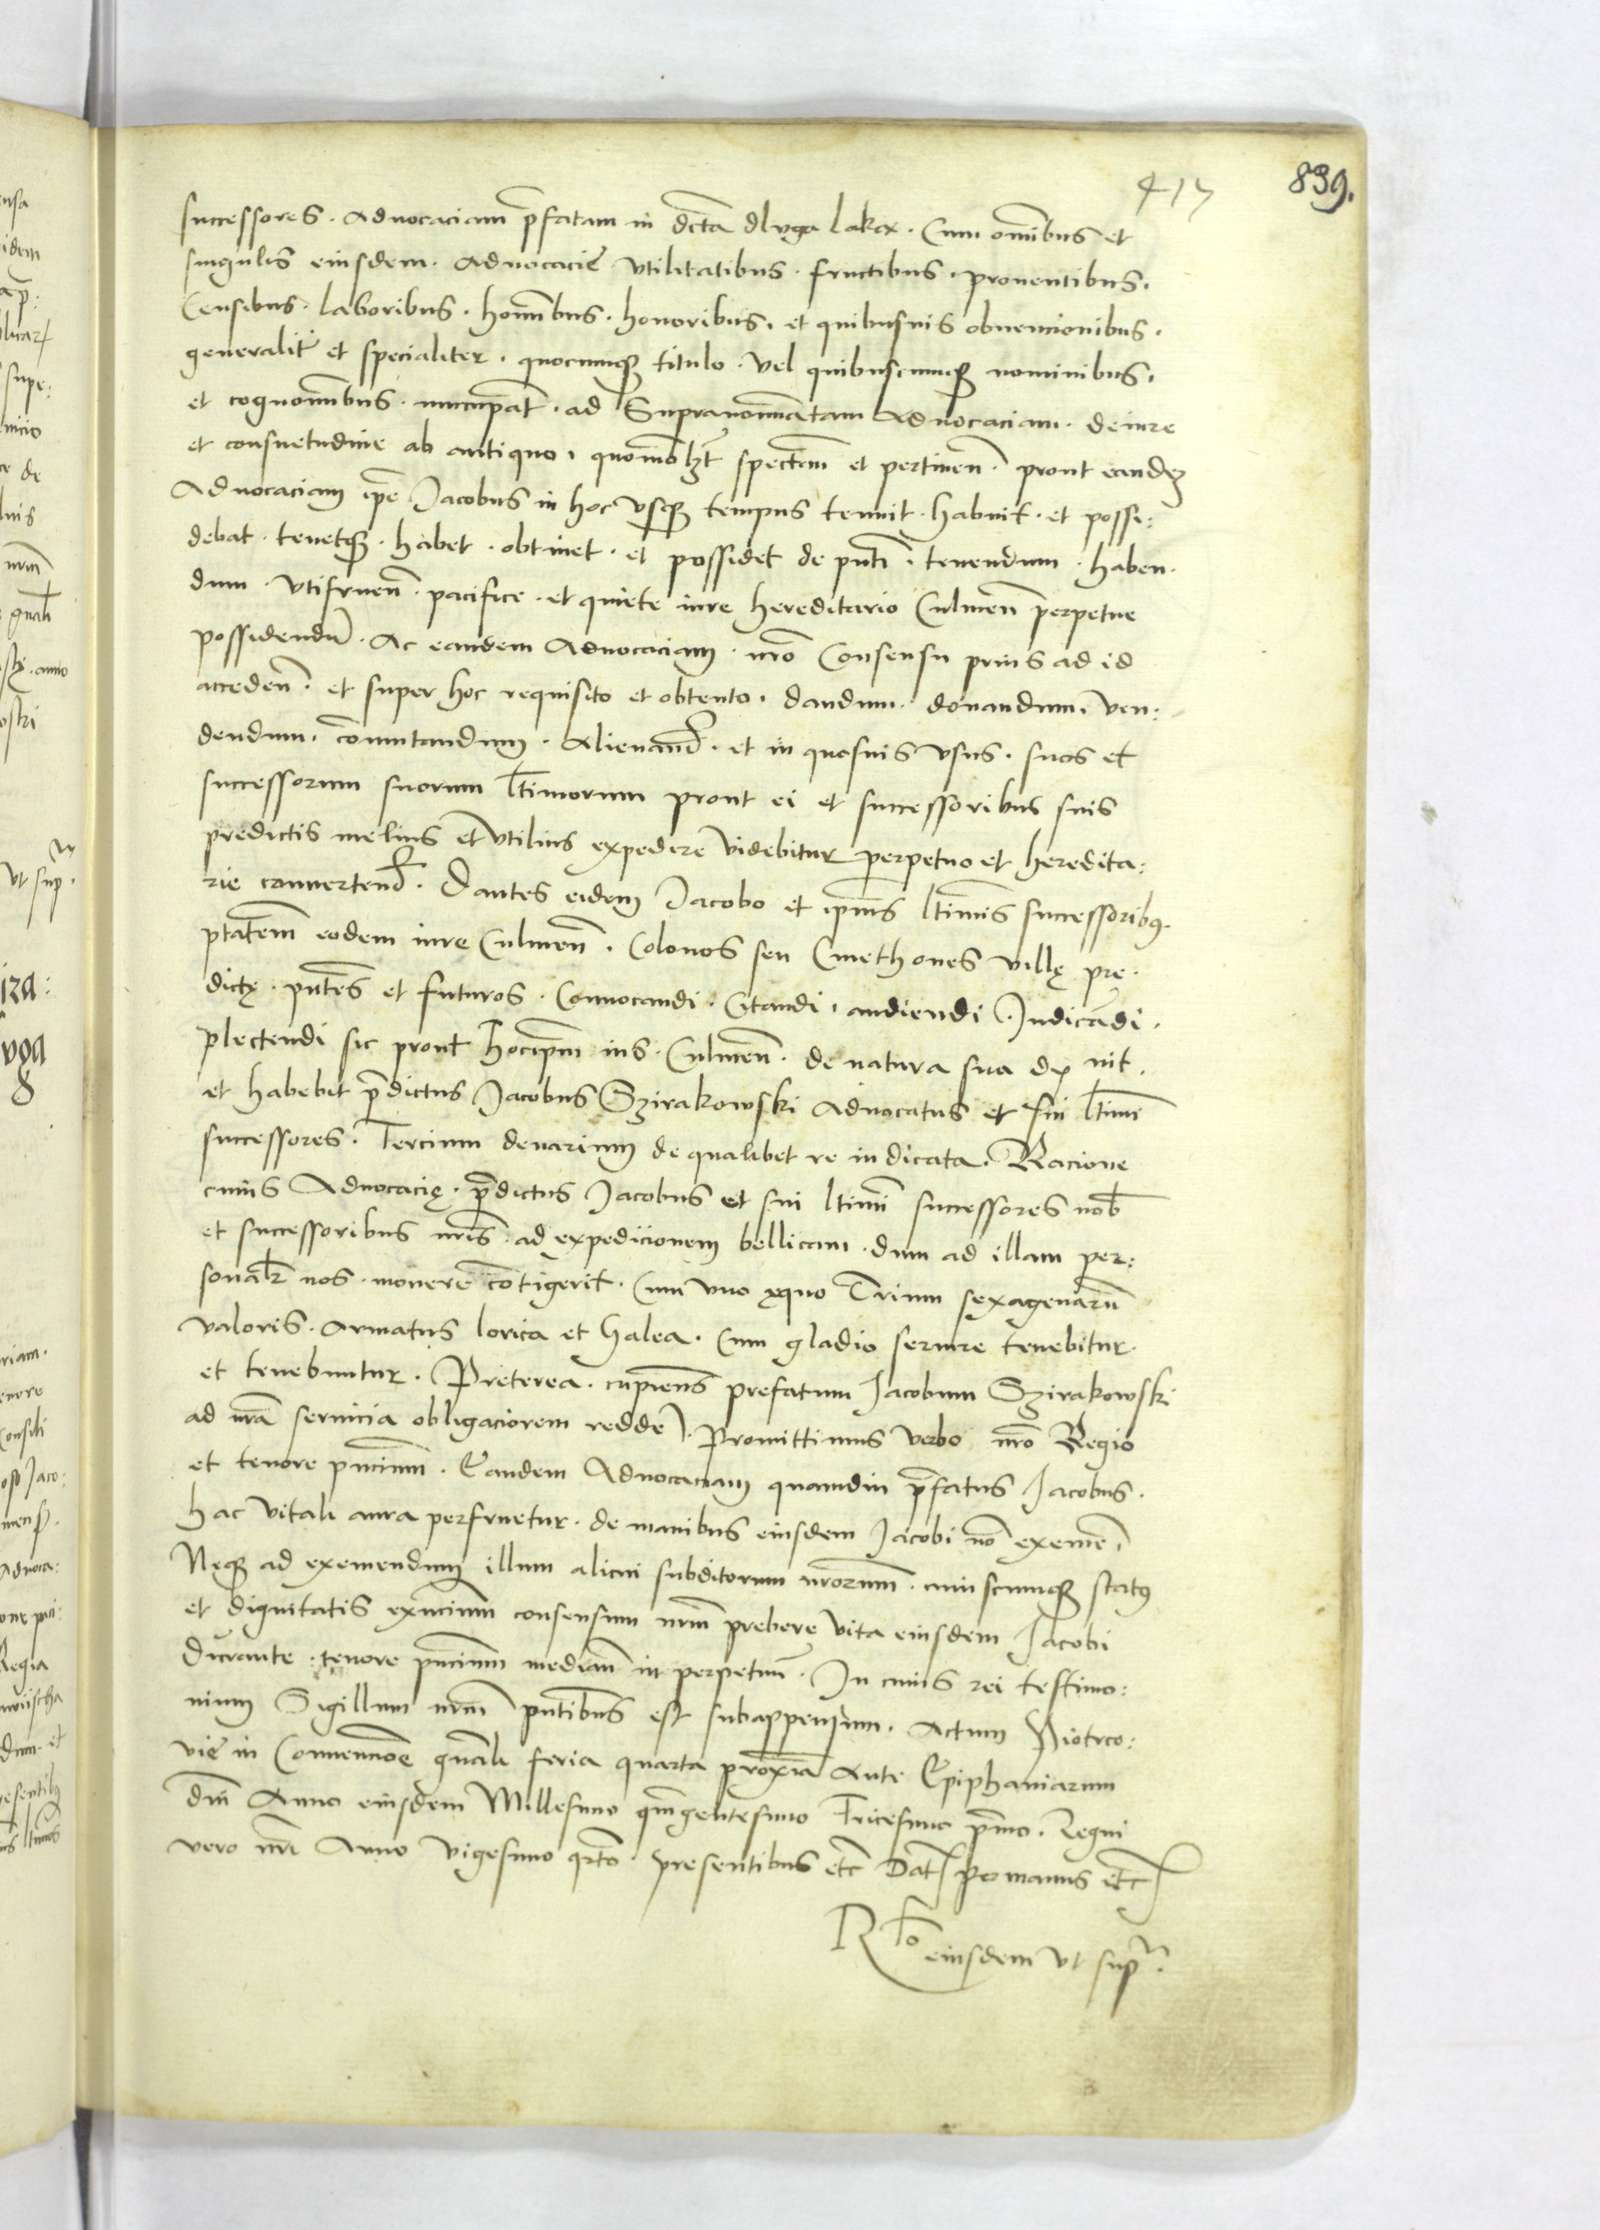 417 839.
successores. Advocaciam p̄fatam in dcta dluga laka. Cum omībus et
singulis eiusdem. Advocacie utilitatibus. fructibus. proventibus.
Censibus. laboribus. homībus. honoribus. et quibusvis obvencionibus.
generalit̄ et specialiter. quocumqꝫ titulo. vel quibuscumqꝫ nominibus.
et cognomībus. nuncupat̄. ad Supranomīatam Advocaciam. de iure
et consuetudine ab antiquo. quomōlꝫt spectan̄ et pertinen̄. prout eandeꝫ
Advocaciam ip̄e Jacobus in hoc usqꝫ tempus tenuit. habuit. et possi:
debat. tenetqꝫ. habet. obtinet. et possidet de pn̄ti. tenendum. haben.
dum. utifruen̄. pacifice. et quiete iure hereditario Culmen̄ perpetue
possidendū. Ac eandem Advocaciam. nr̄o Consensu prius ad id
acceden̄. et super hoc requisito et obtento. dandum. donandum. ven:
dendum. cōmutandum. Alienand̄. et in quosvis usus. suos et
successorum suorum l̄timorum prout ei et successoribus suis
predictis melius et utilius expedire videbitur perpetuo et heredita:
rie convertend̄. Dantes eidem Jacobo et ip̄ius l̄timis successoribꝫ.
ptātem eodem iure Culmen̄. Colonos seu Cmethones villę pre.
dictę. pn̄tes et futuros. Convocandi. Citandi. audiendi. Iudicādi.
plectendi sic prout hocip̄m ius. Culmen̄. de natura sua
et habebit p̄dictus Jacobus Szirakowski Advocatus et sui l̄timi
successores. Tercium denarium de qualibet re iudicata. Racione
cuius Advocacię. p̄dictus Jacobus et sui l̄timi successores nob̄
et successoribus nr̄is. ad expedicionem bellicam. dum ad illam per:
sonalr̄ nos. movere cōtigerit. Cum uno equo Trium sexagenarū
valoris. armatus lorica et halea. Cum gladio servire tenebitur.
et tenebuntur. Preterea. cupien̄s prefatum Jacobum Szirakowski
ad nr̄a servicia obligaciorem redde. Promittimus verbo nr̄o Regio
et tenore pn̄cium. Eandem Advocaciam quamdiu p̄fatus Jacobus.
hac vitali aura perfruetur. de manibus eiusdem Jacobi nō exime.
Neqꝫ ad exemendum illum alicui subditorum nr̄orum. cuiuscumqꝫ statꝰ
et dignitatis consensum nr̄m prebere vita eiusdem Jacobi
durante. tenore pn̄cium median̄ in perpetuū. In cuius rei testimo:
nium Sigillum nr̄m pn̄tibus est subappensum. Actum Piotrco:
vie in Convencōe gn̄ali feria quarta proxīa Ante Epiphaniarum
dn̄i Anno eiusdem Millesimo qn̄gentesimo Tricesimo pr̄mo. Regni
vero nr̄i Anno vigesimo qrto. presentibus etc̄ Dat̄ per manus etc̄
Rl̄o eiusdem ut supꝛ̄.